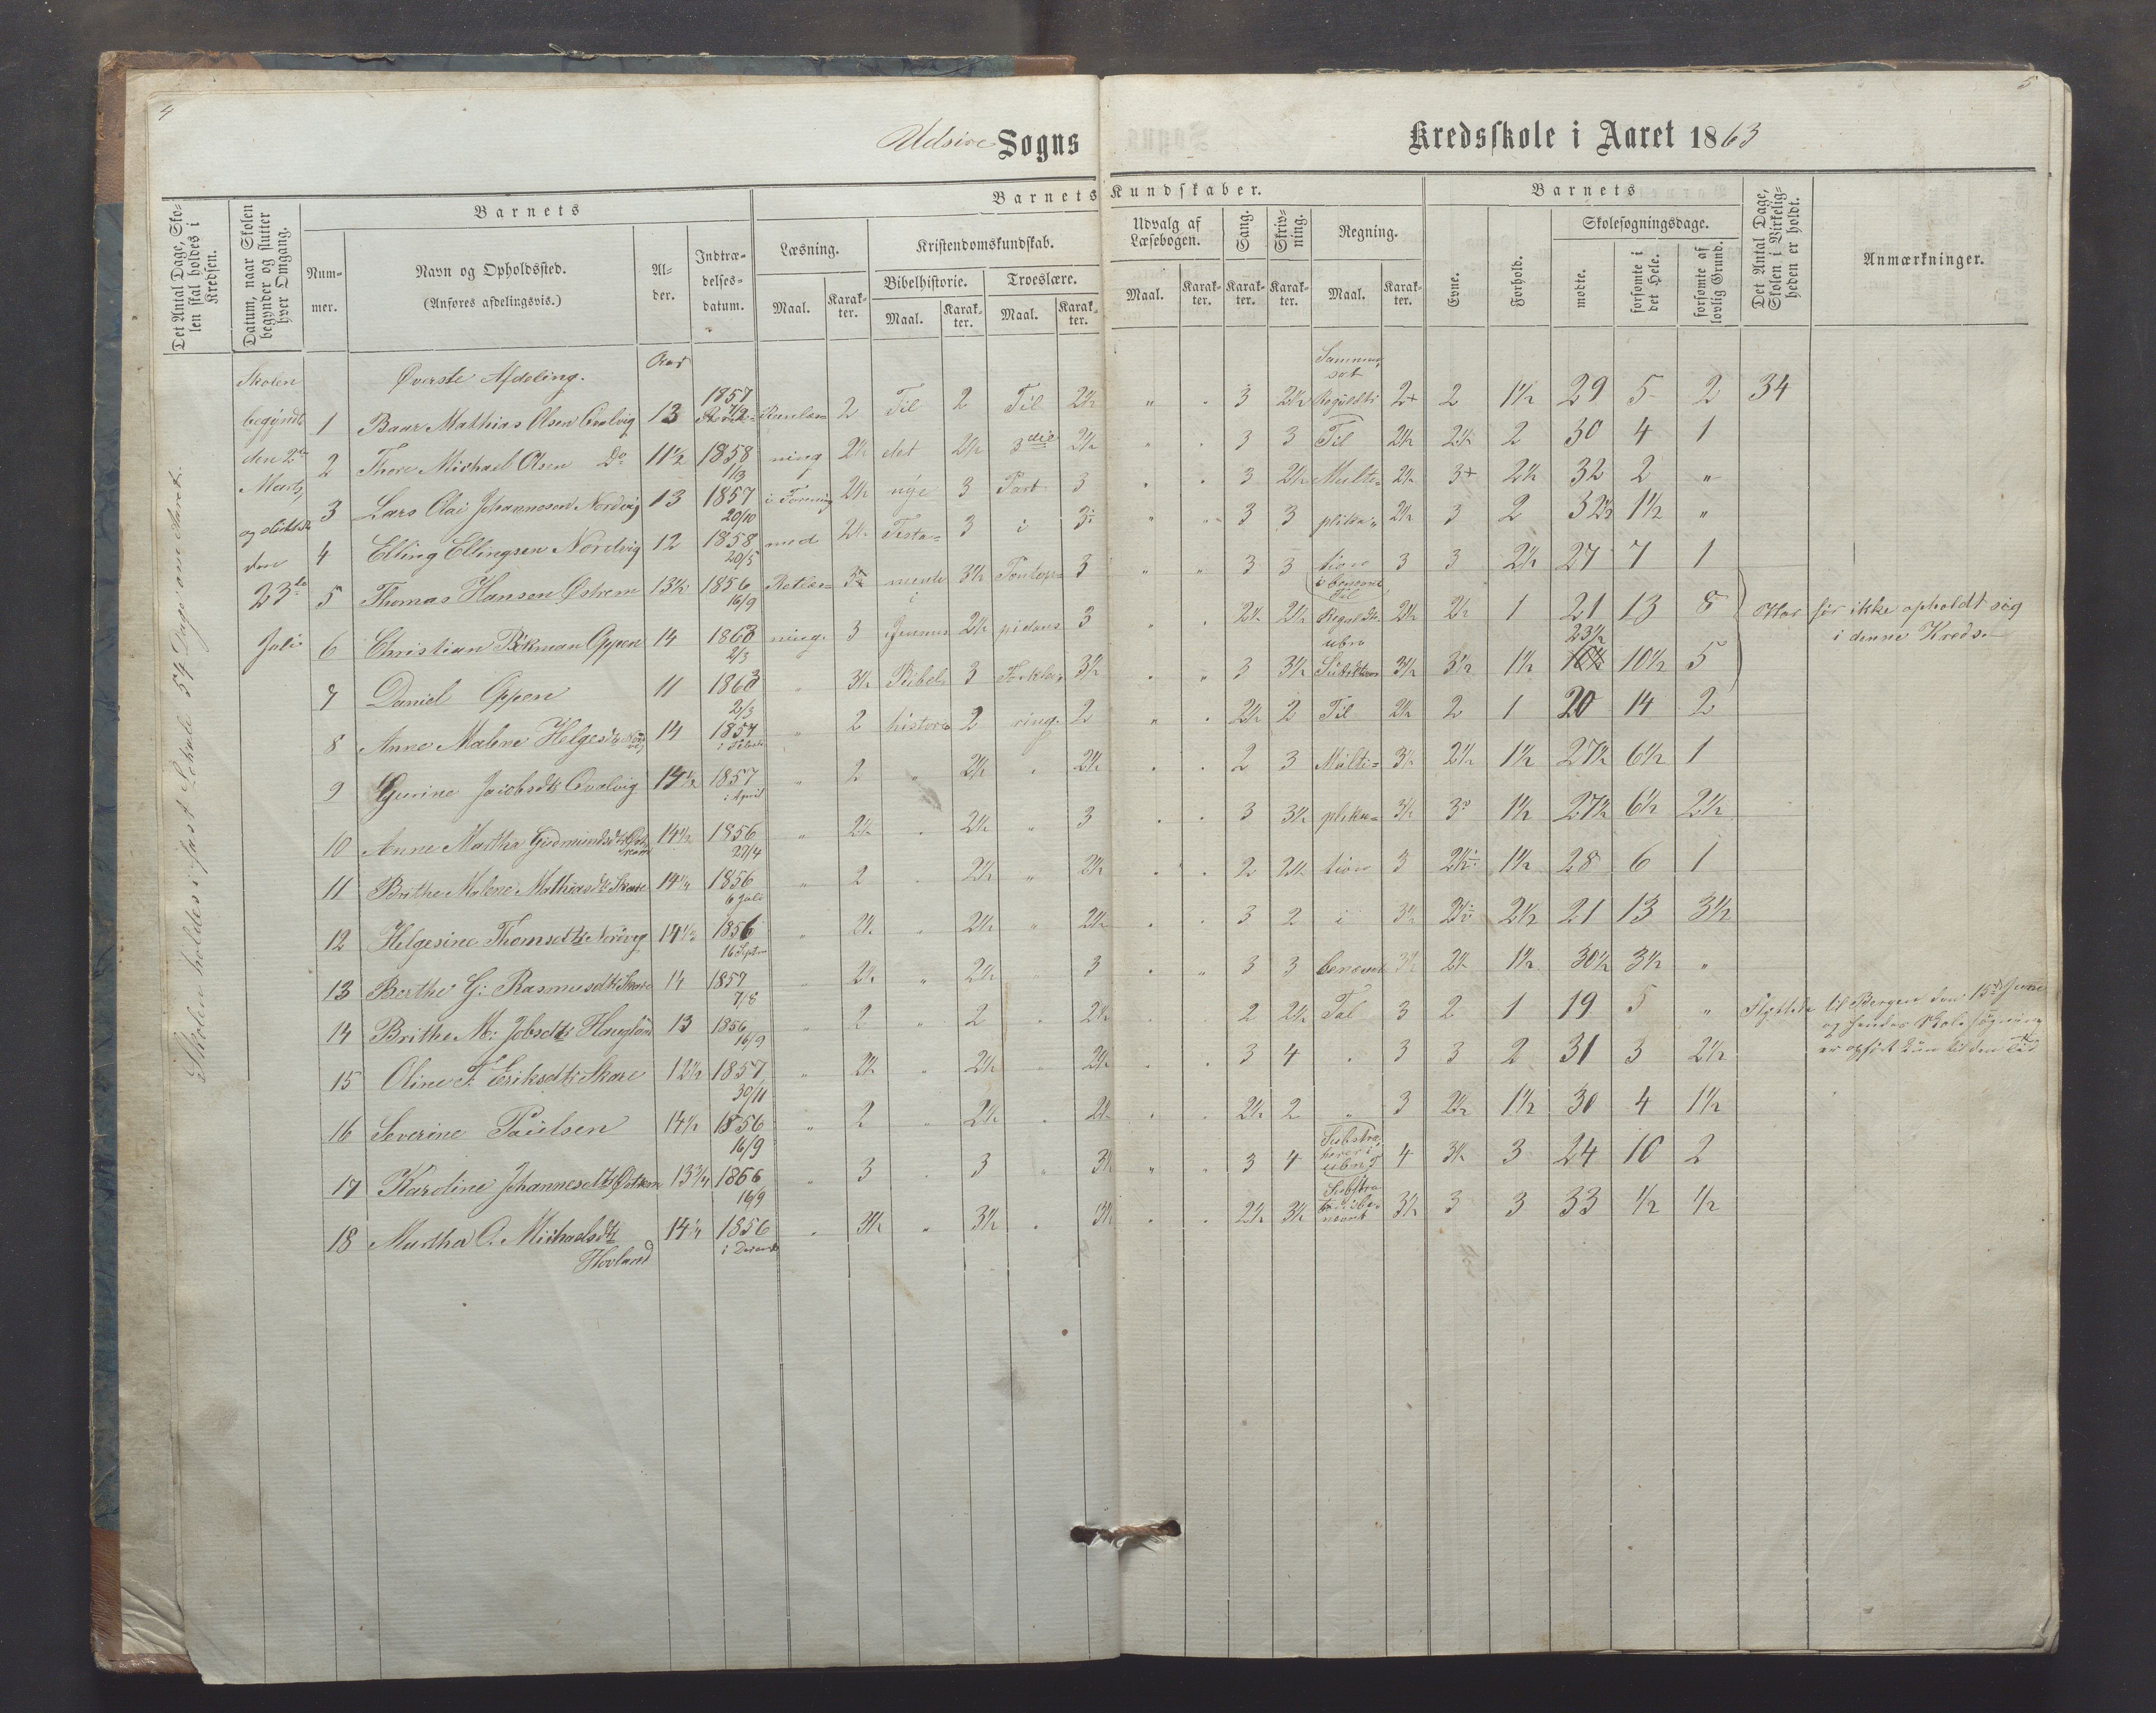 4
5
Udsire Sogns Kredsskole i Aaret 1863
Det Antal Dage, Skolen skal holdes i Kredsen.
Datum, naar Skolen begynder og slutter hver Omgang.
Barnets
Nummer.
Navn og Opholdssted.
(Anføres afdelingsvis.)
Alder.
Indtrædelsesdatum.
Barnets Kundskaber.
Læsning.
Maal. Karakter.
Kristendomskundskab.
Bibelhistorie. Troeslære.
Maal. Karakter. Maal. Karakter.
Udvalg af Læsebogen.
Maal. Karakter.
Sang. Karakter.
Skrivning. Karakter.
Regning.
Maal. Karakter.
Barnets
Evne.
Forhold.
Skolesøgningsdage.
mødte.
forsømte i det Hele.
forsømte af lovlig Grund.
Det Antal Dage, Skolen i Virkeligheden er holdt.
Anmærkninger.
Skolen holdes i fast Lokale 54 Dage om Aaret.
Skolen
begyndte
den 2den
Marts
og sluttede
den
23de
Juli
Øverste Afdeling. Aar
1 Baar Mathias Olsen Qvalvig 13 1857 2 Til 2 Til 2½ " " 3 2½ 2+ 2 1½ 29 5 2 34
2 Thore Michael Olsen Do 11½ 1858 1/3 ning 2½ det 2½ 3die 2½ " " 3 3 Til 2½ 2½ 2 30 4 1
3 Lars Olai Johannesen Nordvig 13 1857 20/10 i Forening 2½ nye 3 Part 3 " " 3 2½ Multi= 2½ 3+ 2½ 32 2 "
4 Elling Ellingsen Nordvig 12 1858 20/5 med 2½ Testa= 3 i " " 3 3 plika= 2½ 3 2 32½ 1½ "
5 Thomas Hansen Østrem 13½ 1856 16/9 mente 3½ Pontop= 3 " " 3 3 tion 3 3 2½ 27 7 1
6 Christian Bökman Oppen 14 1863 2/3 ning. 3 2½ pidans 3 " " 2½ 2½ 2½ 2½ 1 21 13 8 Har før ikke opholdt sig
i denne Kreds.
7 Daniel Oppen 11 1863 2/3 " 3½ Bibel 3 Forkla= 3½ " " 3 3½ 3½ 3½ 1½ 23½ 10½ 5
8 Anne Malene Helgesdtr 14 1857 " 2 historie 2 ring. 2 " " 2½ 2 Til 2½ 2 1 20 14 2
9 Gurine Jacobsdtr Qvalvig 14½ 1857 i April " 2 " 2½ " 2½ " " 2 3 Multi= 3½ 2½ 1½ 27½ 6½ 1
10 Anne Martha Gudmundsdtr Østrem 14½ 1856 27/4 " 2½ " 2½ " 3 " " 3 3½ plika= 3½ 3 1½ 27½ 6½ 2½
11 Brithe Malene Mathiasdtr Skare 14¼ 1856 6 Juli " 2 " 2½ " 2½ " " 2 2½ tion 3 1½ 28 6 1
12 Helgesine Thomsdtr Nordvig 14½ 1856 16 Septr " 2½ " 2½ " 2½ " " 3 2 i 3½ 2½ 21 13 3½
13 Berthe G: Rasmusdtr Skare 14 1857 7/8 " 2½ " 2½ " 3 " " 3 3 benævnt 3½ 2½ 1½ 30½ 3½ "
14 Brithe M: Jobsdtr Haugland 13 1856 16/9 " 2 " 2 " 2½ " " 2 2½ Tal 3 2 1 19 5 " Flyttede til Bergen den 15de Juni
og hendes Skolesøgning
er opført kun til den Tid
15 Oline F. Eriksdtr Skare 12½ 1857 30/11 " 2½ " 2½ " 2½ " " 3 4 " 3 3 2 31 3 2½
16 Severine Paulsen 14½ 1856 16/9 " 2 " 2½ " 2½ " " 2½ 2 " 3 2½ 1½ 30 4 1½
17 Karoline Johannesdtr Østrem 13¾ 1866 16/9 " 3 " 3 " 3½ " " 3 4 4 3½ 3 24 10 2
18 Martha O. Michaelsdtr
Hovland 14¼ 1856 " 3½ " 3½ " 3½ " " 2½ 3½ 3½ 3 3 33 ½ ½